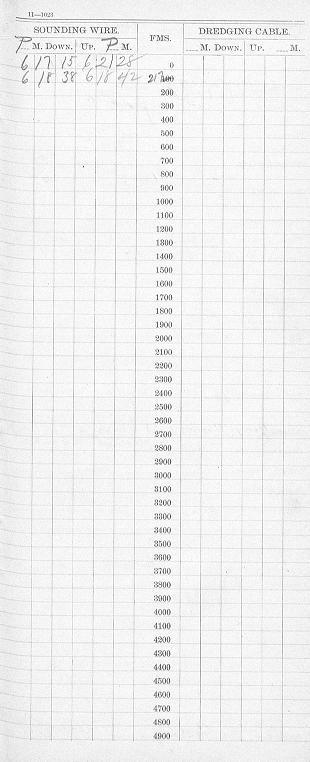 11—1023
SOUNDING WIRE. FMS. DREDGING CABLE.
P. M. DOWN. UP. P. M. M. DOWN. UP. M.
6 17 15 6 21 28 0
6 18 38 6 18 42 100
200
300
400
500
600
700
800
900
1000
1100
1200
1300
1400
1500
1600
1700
1800
1900
2000
2100
2200
2300
2400
2500
2600
2700
2800
2900
3000
3100
3200
3300
3400
3500
3600
3700
3800
3900
4000
4100
4200
4300
4400
4500
4600
4700
4800
4900